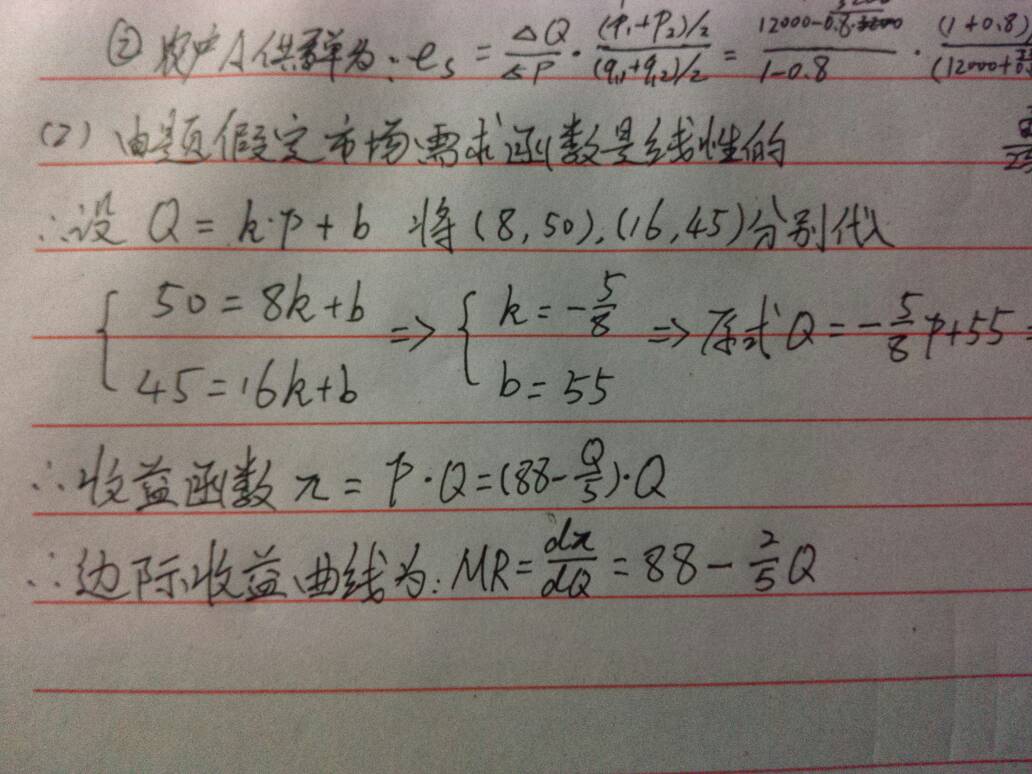 ② 农户A供弹为: eₛ = ΔQ/ΔP · ((P₁+P₂)/2)/((q₁+q₂)/2) = (12000-0.8)/(1-0.8) · (1+0.8)/(12000+
(2) 由题假定市场需求函数是线性的
∴设 Q = k·P + b 将(8,50),(16,45)分别代入
{ 50 = 8k+b => { k = -5/8 => 原式 Q = -5/8 P+55
45 = 16k+b b = 55
∴收益函数 π = P·Q = (88-Q/5)·Q
∴边际收益曲线为: MR = dπ/dQ = 88 - 2/5 Q